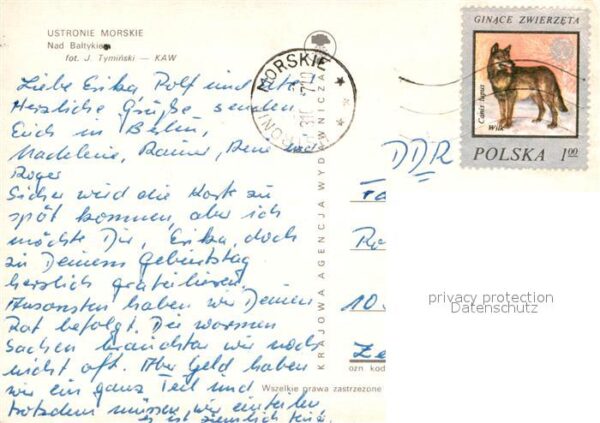 USTRONIE MORSKIE
Nad Bałtykiem
fot. J. Tymiński — KAW
Liebe Erika, Rolf und
Herzliche Grüße senden
Euch in Berlin,
Madeleine, Rainer, René und
Roger
Sicher wird die Karte zu
spät kommen, aber ich
möchte Dir, Erika, doch
zu Deinem Geburtstag
herzlich gratulieren.
Ansonsten haben wir Deinen
Rat befolgt. Die warmen
Sachen brauchten wir noch
nicht oft. Aber Geld haben
wir ein ganz Teil und
trotzdem müssen wir einteilen
es ist ziemlich
MORSKIE
KRAJOWA AGENCJA WYDAWNICZA
GINĄCE ZWIERZĘTA
Canis lupus
Wilk
POLSKA 1.00
DDR
10
ozn. kod
Wszelkie prawa zastrzeżone
privacy protection
Datenschutz